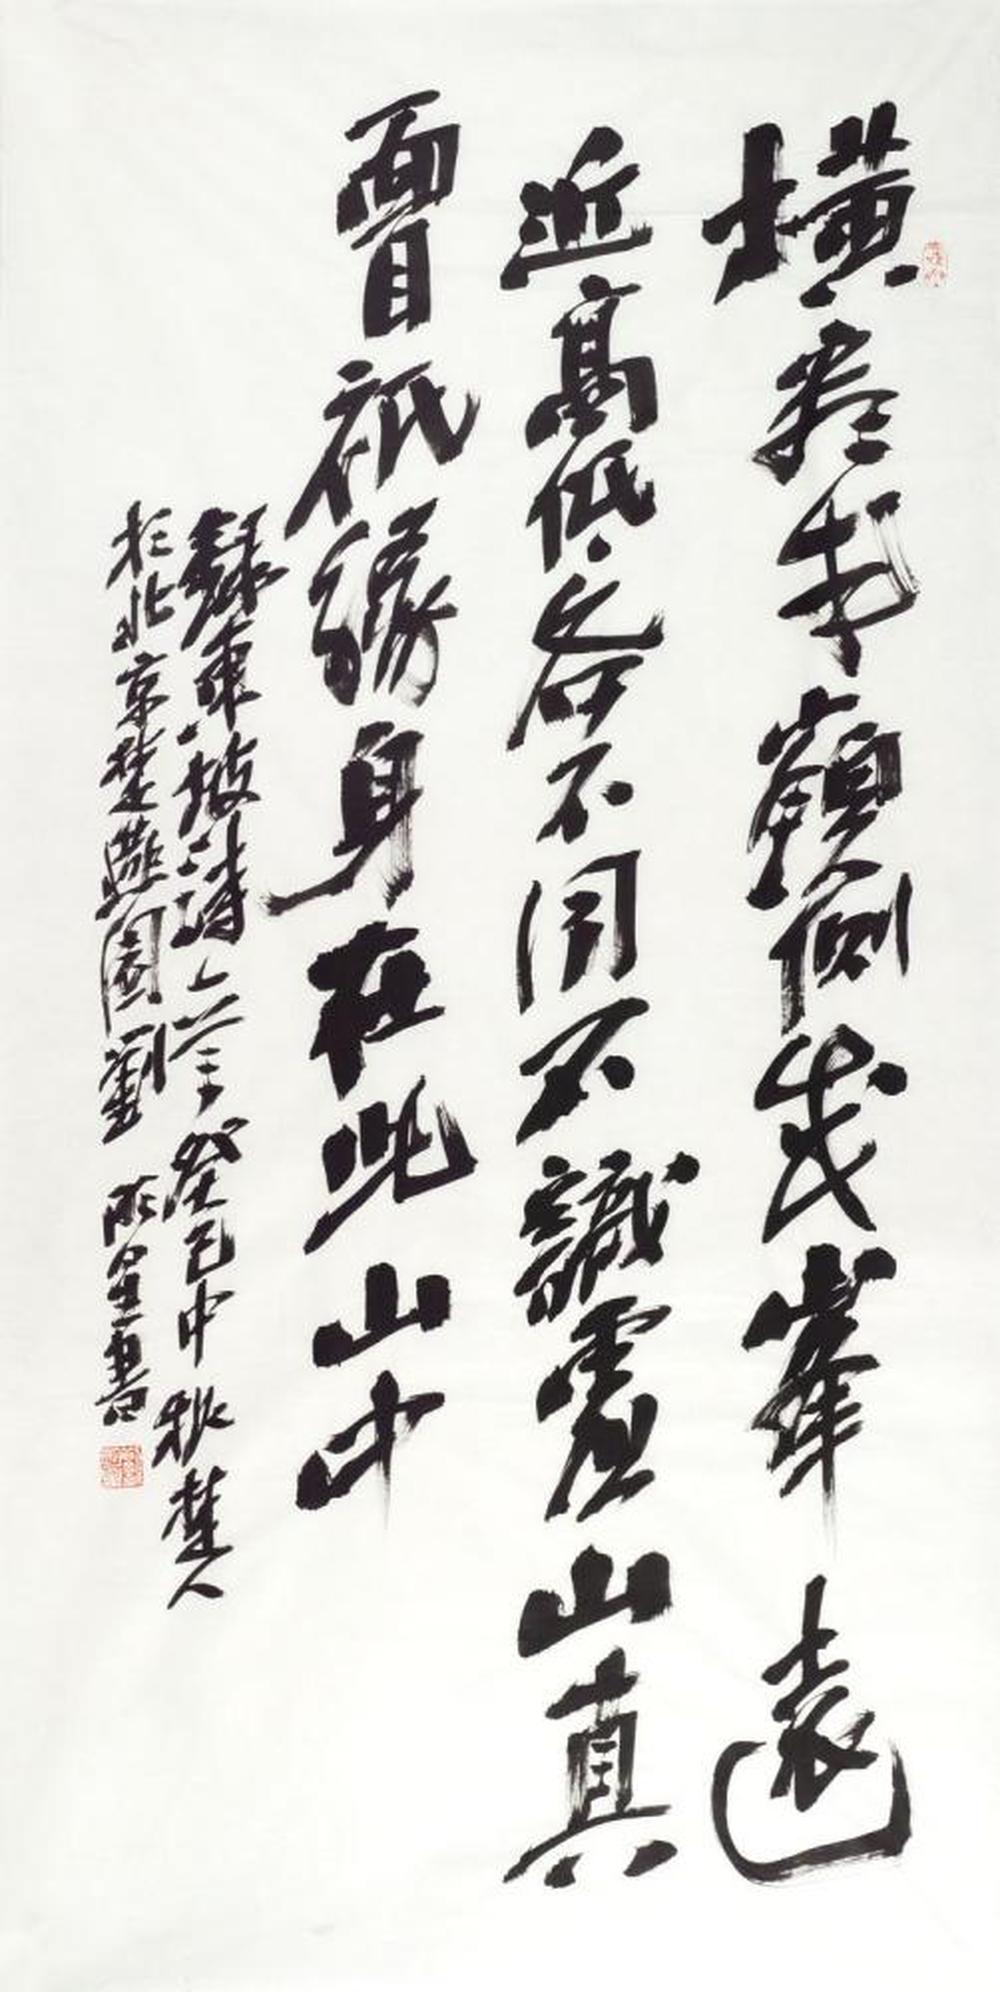 橫看成嶺側成峯遠
近高低各不同不識廬山真
面目祇緣身在此山中
錄東坡詩 癸巳中秋楚人
於北京楚園劉書